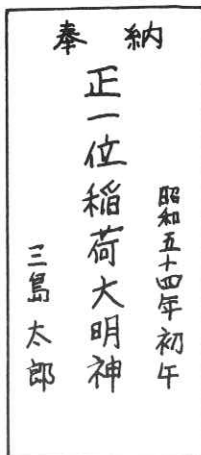 奉納
昭和五十四年初午
正一位稲荷大明神
三島太郎